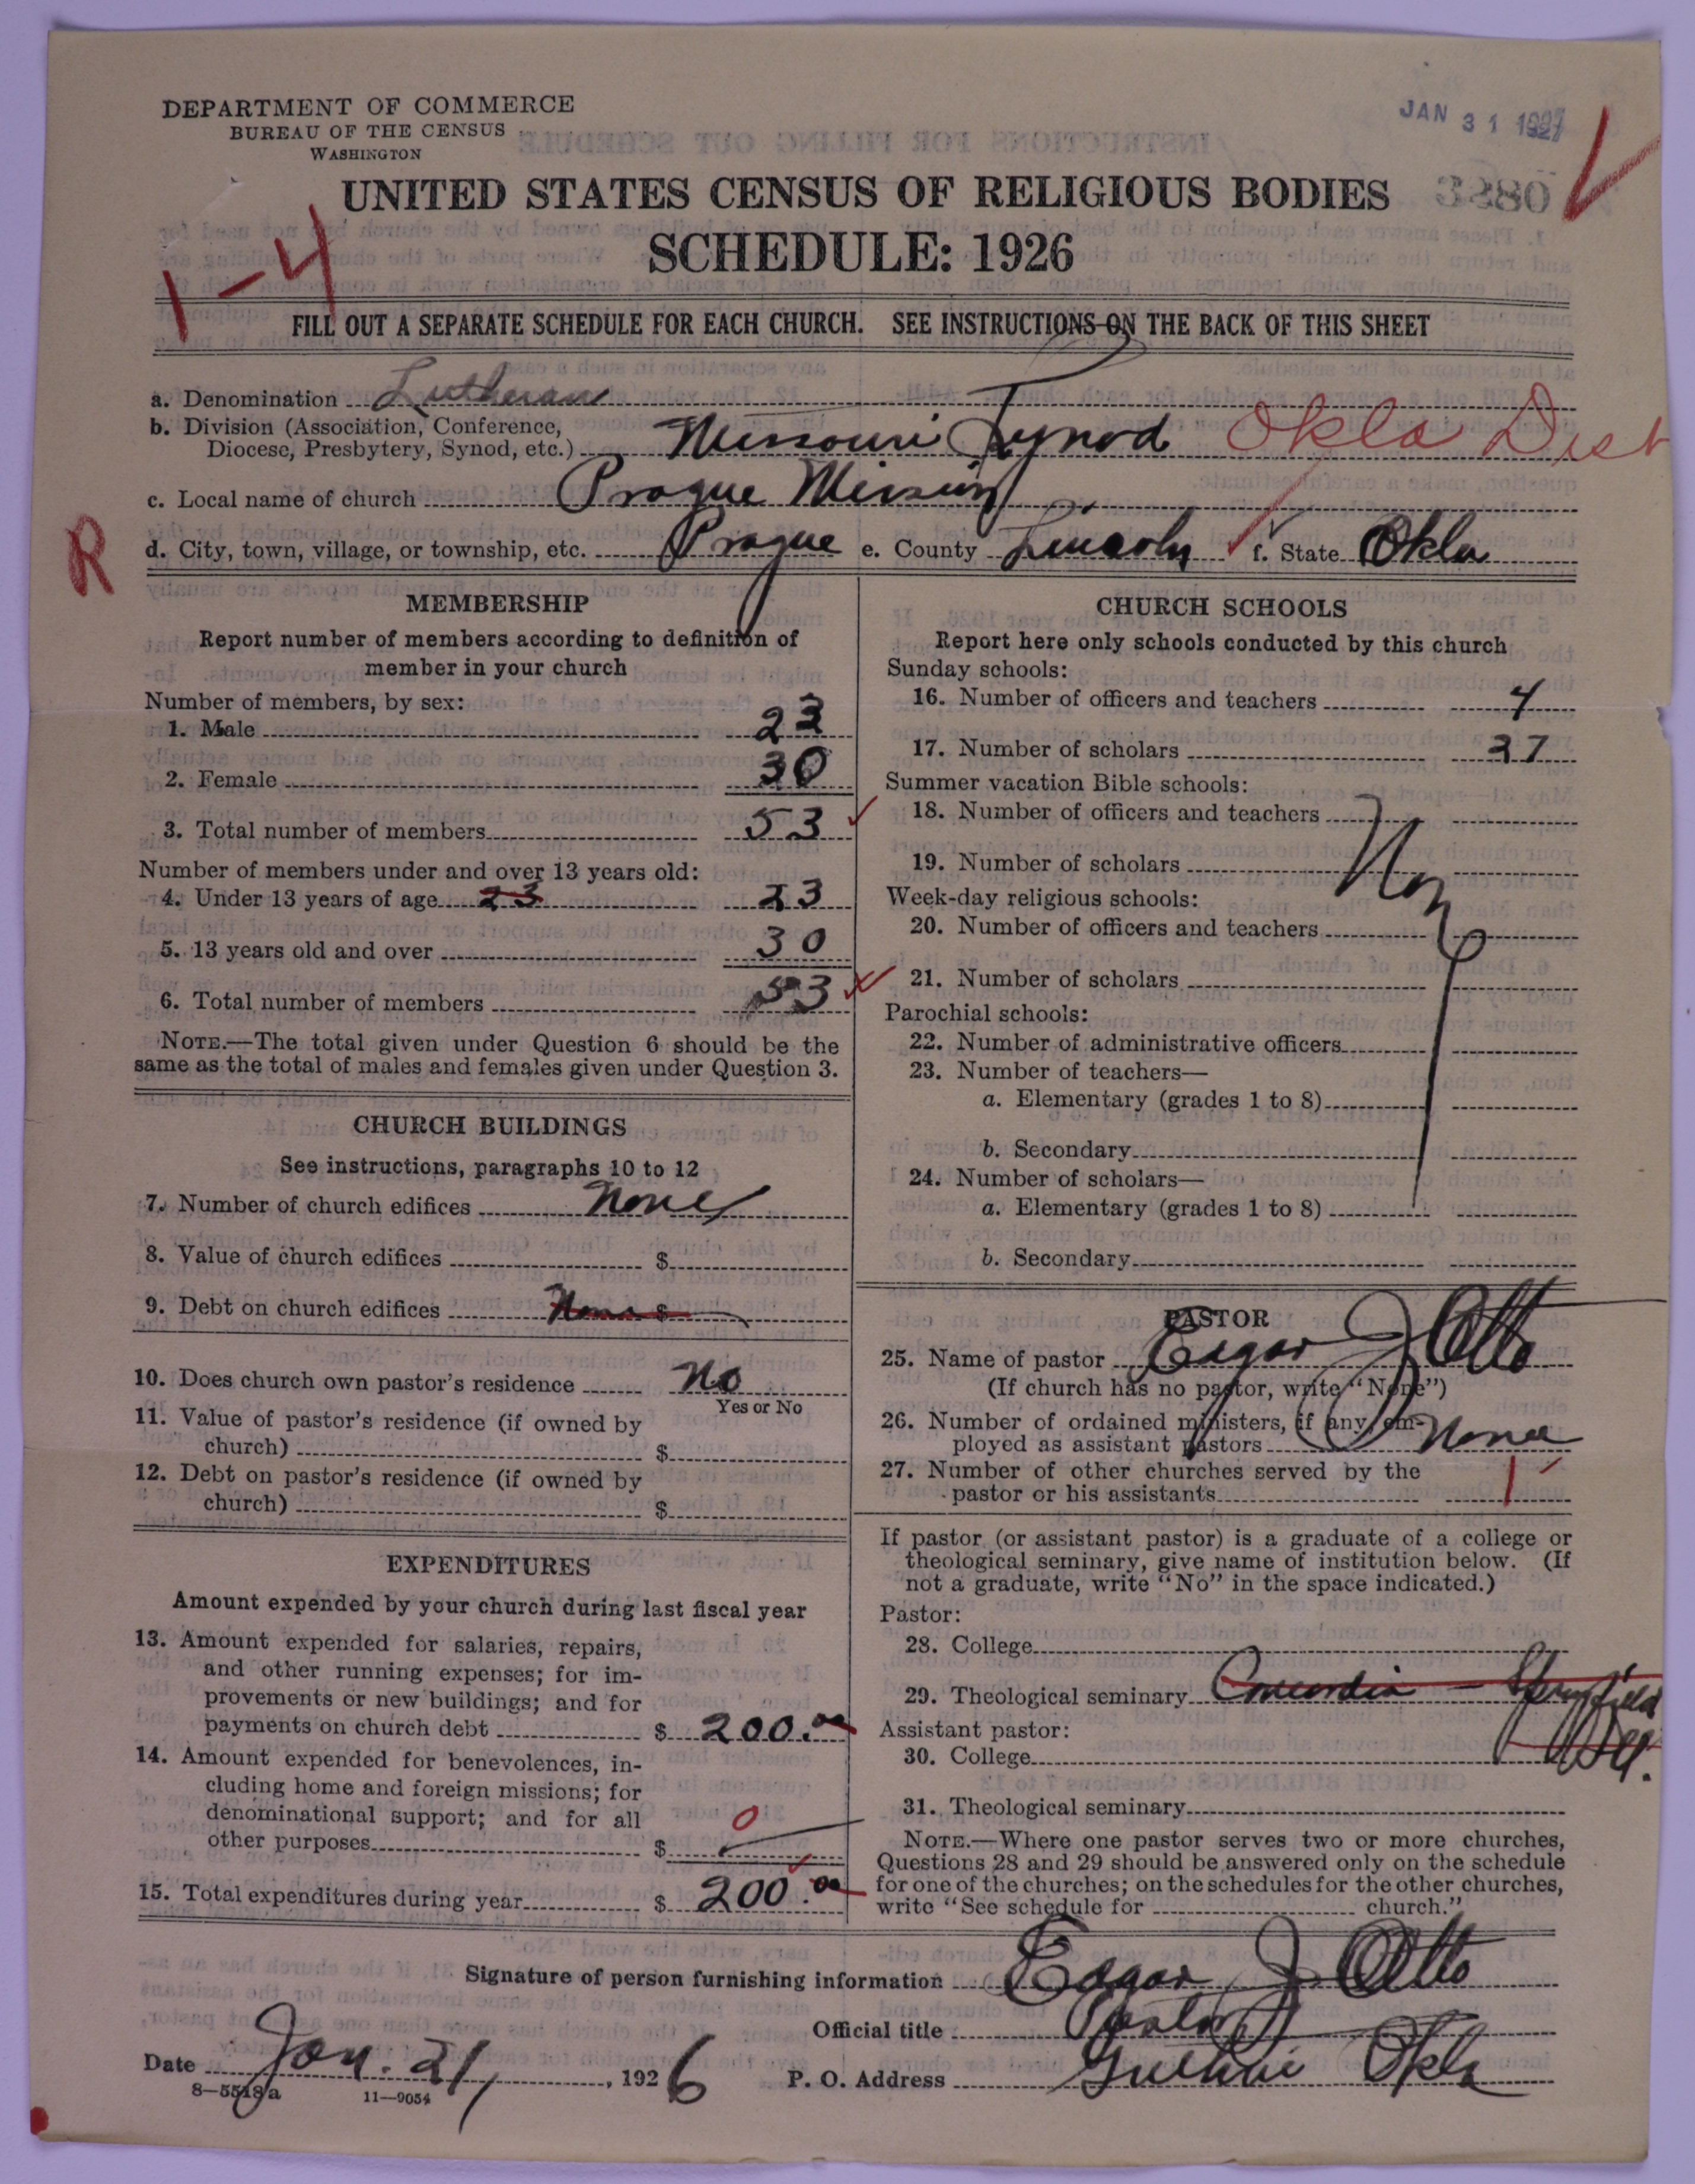 DEPARTMENT OF COMMERCE
BUREAU OF THE CENSUS
WASHINGTON
JAN 31 1927
UNITED STATES CENSUS OF RELIGIOUS BODIES
SCHEDULE: 1926
1-4
FILL OUT A SEPARATE SCHEDULE FOR EACH CHURCH. SEE INSTRUCTIONS ON THE BACK OF THIS SHEET
a. Denomination Lutheran
b. Division (Association, Conference,
Diocese, Presbytery, Synod, etc.) Missouri Synod Okla Dist
c. Local name of church Prague Mission
R
d. City, town, village, or township, etc. Prague e. County Lincoln f. State Okla
MEMBERSHIP
Report number of members according to definition of
member in your church
Number of members, by sex:
1. Male 23
2. Female 30
3. Total number of members 53
Number of members under and over 13 years old:
4. Under 13 years of age 23 23
5. 13 years old and over 30
6. Total number of members 53
NOTE.—The total given under Question 6 should be the
same as the total of males and females given under Question 3.
CHURCH BUILDINGS
See instructions, paragraphs 10 to 12
7. Number of church edifices None
8. Value of church edifices $
9. Debt on church edifices None $
10. Does church own pastor's residence No
Yes or No
11. Value of pastor's residence (if owned by
church) $
12. Debt on pastor's residence (if owned by
church) $
EXPENDITURES
Amount expended by your church during last fiscal year
13. Amount expended for salaries, repairs,
and other running expenses; for im-
provements or new buildings; and for
payments on church debt $ 200.00
14. Amount expended for benevolences, in-
cluding home and foreign missions; for
denominational support; and for all
other purposes $ 0
15. Total expenditures during year $ 200.00
CHURCH SCHOOLS
Report here only schools conducted by this church
Sunday schools:
16. Number of officers and teachers 4
17. Number of scholars 37
Summer vacation Bible schools:
18. Number of officers and teachers
19. Number of scholars
Week-day religious schools:
20. Number of officers and teachers
21. Number of scholars
Parochial schools:
22. Number of administrative officers
23. Number of teachers—
a. Elementary (grades 1 to 8)
b. Secondary
24. Number of scholars—
a. Elementary (grades 1 to 8)
b. Secondary
PASTOR
25. Name of pastor Edgar J Otto
(If church has no pastor, write "None")
26. Number of ordained ministers, if any, em-
ployed as assistant pastors None
27. Number of other churches served by the
pastor or his assistants 1
If pastor (or assistant pastor) is a graduate of a college or
theological seminary, give name of institution below. (If
not a graduate, write "No" in the space indicated.)
Pastor:
28. College
29. Theological seminary Concordia - Springfield
Ill.
Assistant pastor:
30. College
31. Theological seminary
NOTE.—Where one pastor serves two or more churches,
Questions 28 and 29 should be answered only on the schedule
for one of the churches; on the schedules for the other churches,
write "See schedule for church."
Signature of person furnishing information Edgar J Otto
Official title Pastor
Date Jan. 21, 1926
P. O. Address Guthrie Okla
8—5518a 11—9054